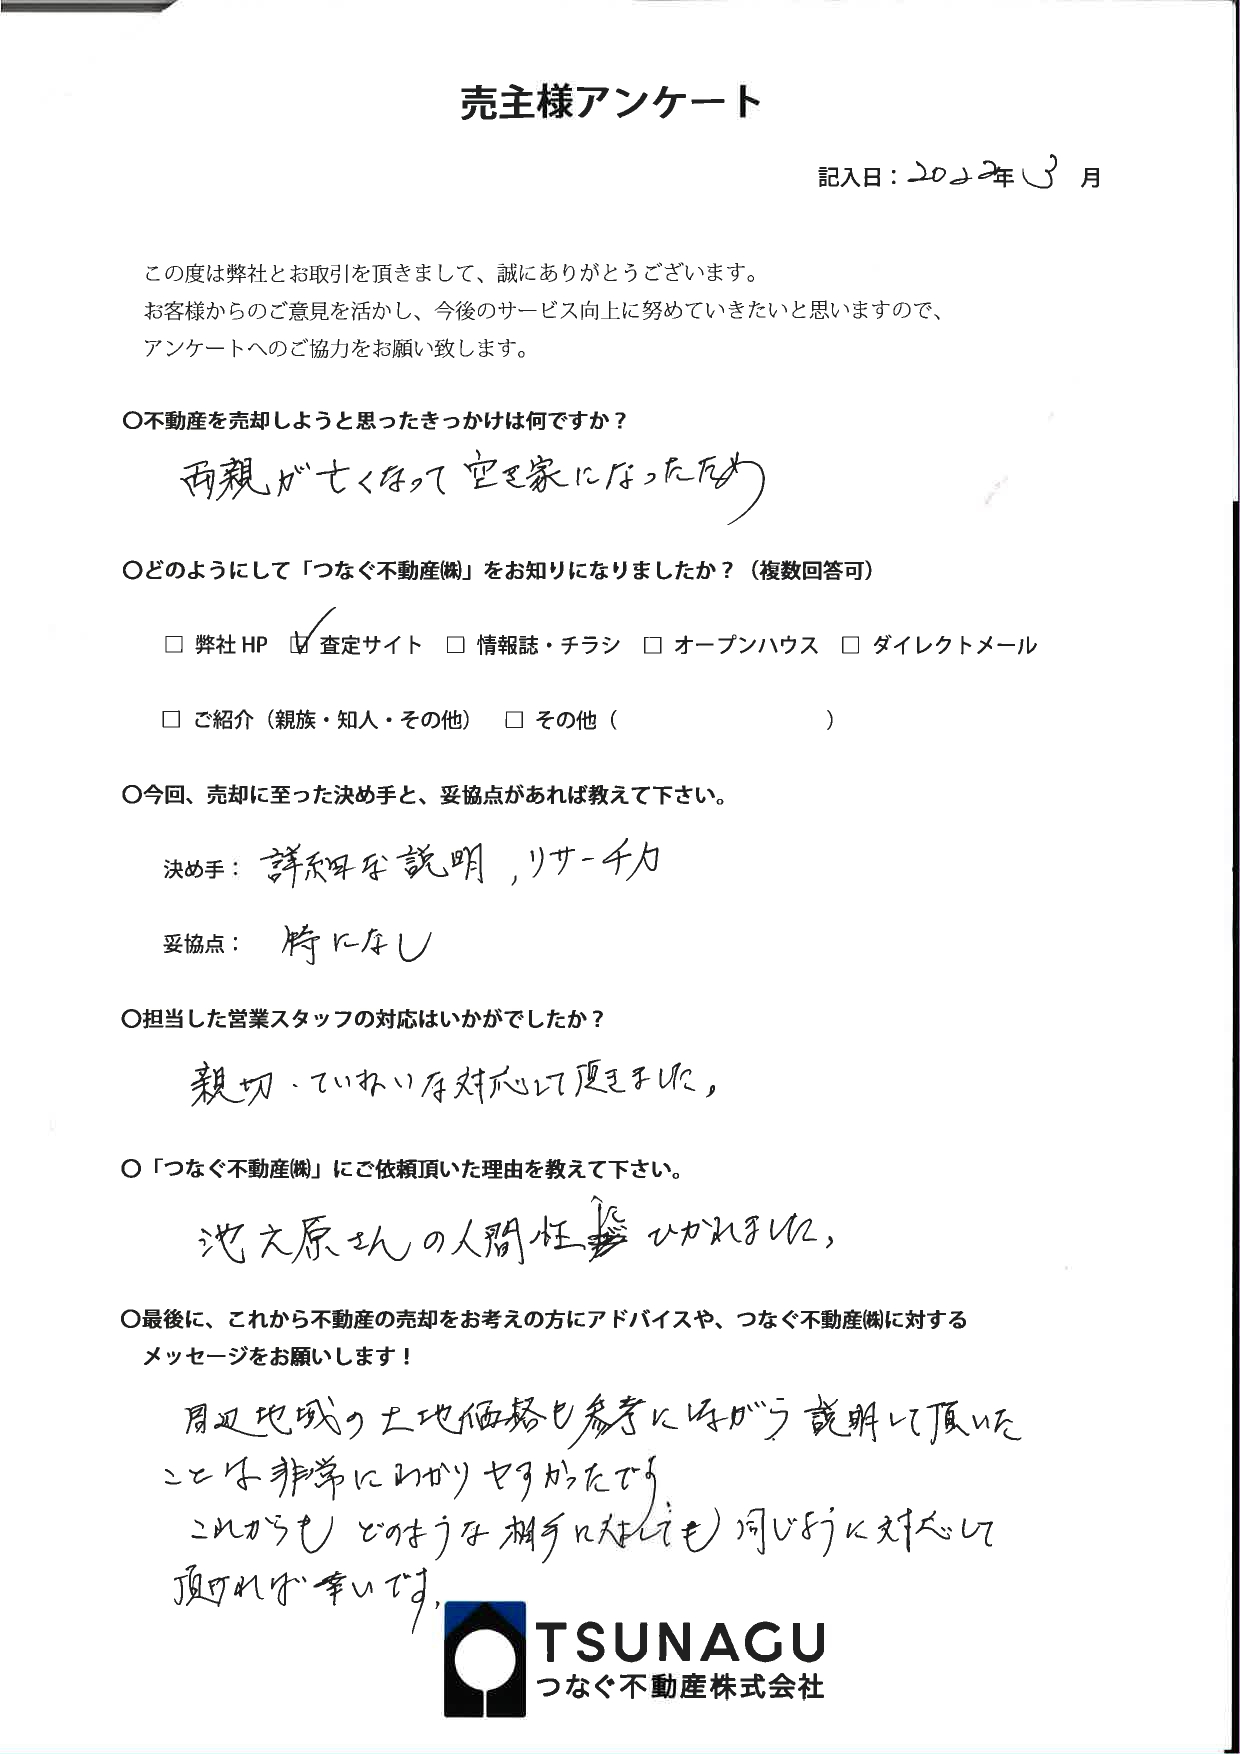 売主様アンケート
記入日：2022年3月
この度は弊社とお取引を頂きまして、誠にありがとうございます。
お客様からのご意見を活かし、今後のサービス向上に努めていきたいと思いますので、
アンケートへのご協力をお願い致します。
〇不動産を売却しようと思ったきっかけは何ですか？
両親が亡くなって空き家になったため
〇どのようにして「つなぐ不動産㈱」をお知りになりましたか？（複数回答可）
□ 弊社HP ☑ 査定サイト □ 情報誌・チラシ □ オープンハウス □ ダイレクトメール
□ ご紹介（親族・知人・その他） □ その他（ ）
〇今回、売却に至った決め手と、妥協点があれば教えて下さい。
決め手： 詳細な説明，リサーチ力
妥協点： 特になし
〇担当した営業スタッフの対応はいかがでしたか？
親切・ていねいな対応して頂きました。
〇「つなぐ不動産㈱」にご依頼頂いた理由を教えて下さい。
池大原さんの人間性にひかれました。
〇最後に、これから不動産の売却をお考えの方にアドバイスや、つなぐ不動産㈱に対する
メッセージをお願いします！
周辺地域の土地価格も参考にしながら説明して頂いた
ことは非常にわかりやすかったです。
これからもどのような相手に対しても同じように対応して
頂ければ幸いです。
TSUNAGU
つなぐ不動産株式会社